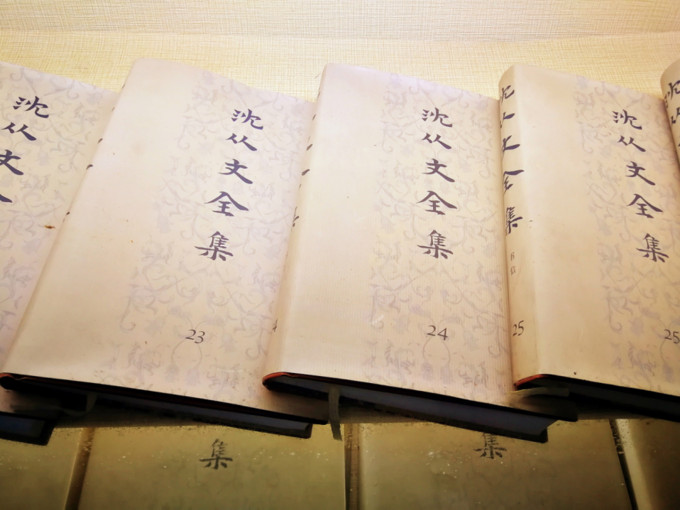 沈从文
沈从文全集
23
沈从文全集
24
沈从文全集
25
沈从文全集
25
集
集